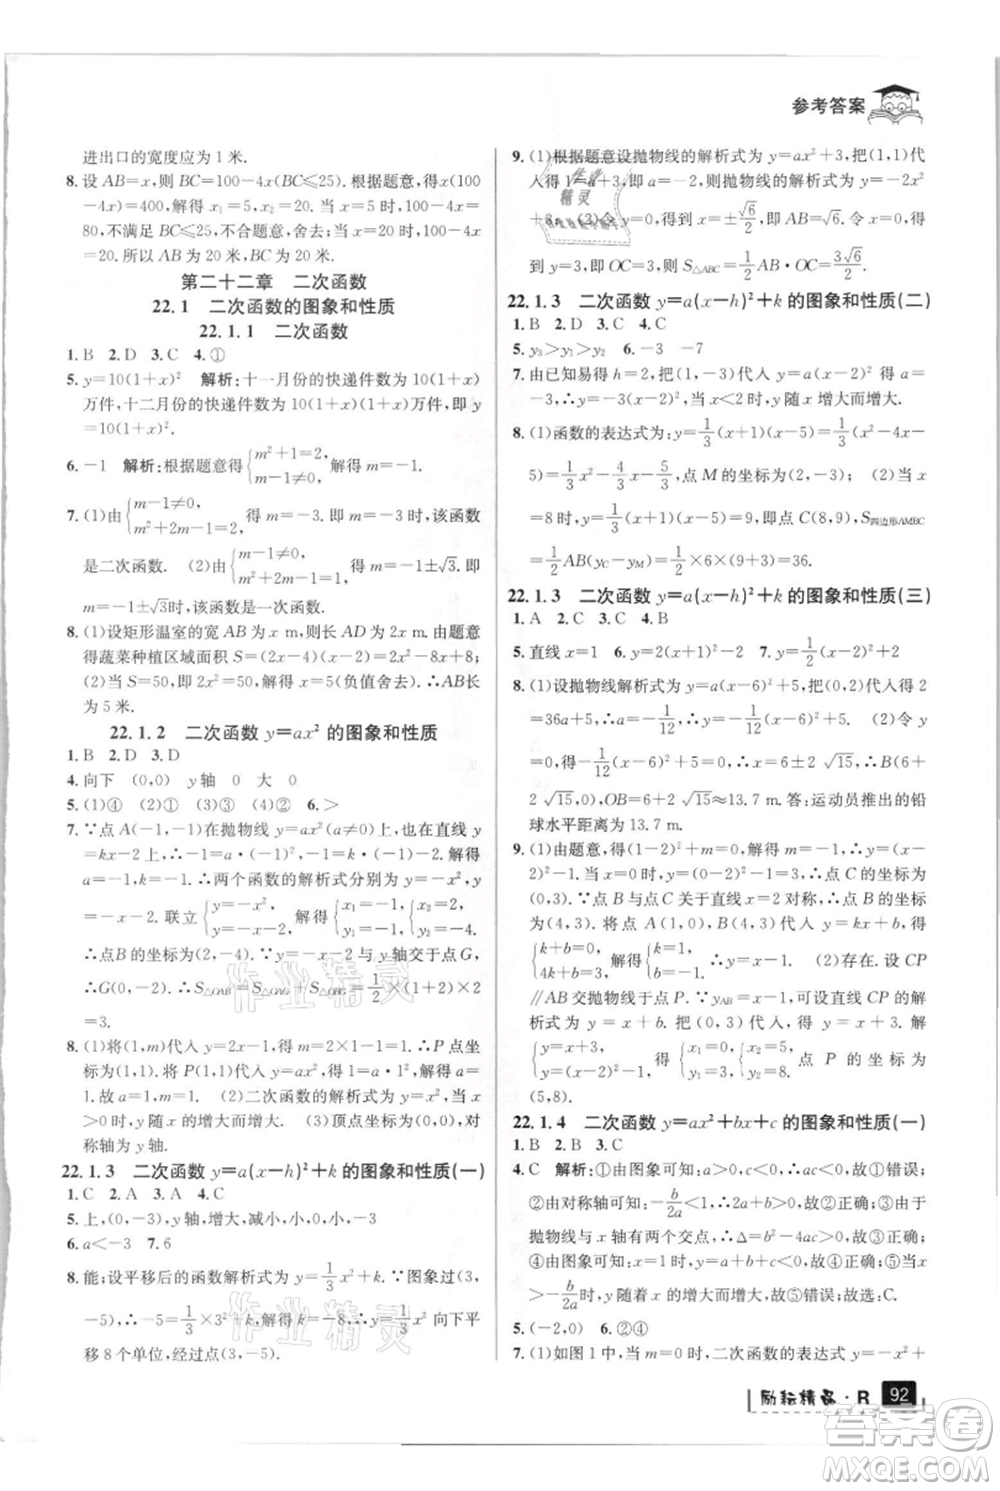 参考答案
进出口的宽度应为1米.
8. 设AB=x,则BC=100-4x(BC≤25).根据题意,得x(100
-4x)=400,解得x₁=5,x₂=20.当x=5时,100-4x=
80,不满足BC≤25,不合题意,舍去;当x=20时,100-4x
=20.所以AB为20米,BC为20米.
第二十二章 二次函数
22.1 二次函数的图象和性质
22.1.1 二次函数
1. B 2. D 3. C 4. ①
5. y=10(1+x)² 解析:十一月份的快递件数为10(1+x)
万件,十二月份的快递件数为10(1+x)(1+x)万件,即y
=10(1+x)².
6. -1 解析:根据题意得{m²+1=2, m-1≠0,解得m=-1.
7. (1)由{m-1≠0, m²+2m-1=2,得m=-3.即m=-3时,该函数
是二次函数. (2)由{m-1≠0, m²+2m-1=1,得m=-1±√3.即m=
-1±√3时,该函数为一次函数.
8. (1)设矩形温室的宽AB为x m,则长AD为2x m.由题意
得蔬菜种植区域面积S=(2x-4)(x-2)=2x²-8x+8.
(2)当S=50时,50=2(x-2)²,x=5(负值舍去).∴AB长
为5米.
22.1.2 二次函数y=ax²的图象和性质
1. B 2. D 3. D
4. 向下 (0,0) y轴 0 大 0
5. (1)④ (2)① (3)③ (4)② 6. >
7. ∵点A(-1,-1)在抛物线y=ax²(a≠0)上,也在直线y
=kx-2上,∴-1=a·(-1)²,-1=k·(-1)-2.解得
a=-1,k=-1.∴两个函数的解析式分别为y=-x²,y=
-x-2.联立{y=-x², y=-x-2.解得{x₁=-1, y₁=-1,{x₂=2, y₂=-4.
∴点B的坐标为(2,-4).∵y=-x-2与y轴交于点G,
∴G(0,-2).∴S△OAB=S△OAG+S△OBG=1/2×(1+2)×2
=3.
8. (1)将(1,m)代入y=2x-1得m=2×1-1=1.∴P点坐
标为(1,1).将P点坐标(1,1)代入y=ax²得1=a·1²,解得
a=1.故a=1,m=1. (2)二次函数的解析式为y=x²,当x
>0时,y随x的增大而增大. (3)顶点坐标为(0,0),对
称轴为y轴.
22.1.3 二次函数y=a(x-h)²+k的图象和性质(一)
1. C 2. A 3. A 4. C
5. 上,(0,-3),y轴,增大,减小,小,-3
6. a<-3 7. 6
8. 能;设平移后的函数解析式为y=1/3x²+k.∵图象过(3,
-5),∴-5=1/3×9+k,∴k=-8.∴将y=1/3x²向下平
移8个单位,经过点(3,-5).
9. (1)根据题意设抛物线的解析式为y=ax²+3,把(1,1)代
入得1=a+3,即a=-2,则抛物线的解析式为y=-2x²
+3. (3)令y=0,得到x=±√6/2,即AB=√6.令x=0,得
到y=3,即OC=3,则S△ABC=1/2AB·OC=3√6/2.
22.1.3 二次函数y=a(x-h)²+k的图象和性质(二)
1. B 2. D 3. C 4. C
5. y₃>y₁>y₂ 6. -3 -7
7. 由已知易得h=2,把(1,-3)代入y=a(x-2)²,得a=
-3,∴y=-3(x-2)².当x<2时,y随x增大而增大.
8. (1)函数的表达式为:y=1/3(x+1)(x-5)=1/3(x²-4x-
5)=1/3x²-4/3x-5/3,点M的坐标为(2,-3); (2)当x
=8时,y=1/3(x+1)(x-5)=9,即点C(8,9),S四边形AMBC
=1/2AB(yC-yM)=1/2×6×(9+3)=36.
22.1.3 二次函数y=a(x-h)²+k的图象和性质(三)
1. A 2. C 3. C 4. B
5. 直线x=1 6. 2 7. y=1/2(x-2)²+2
8. (1)设抛物线解析式为y=a(x-6)²+5,将A(0,2)代入得2
=36a+5,∴a=-1/12,∴y=-1/12(x-6)²+5. (2)令y
=0,得-1/12(x-6)²+5=0,x=6±2 √15,∴B(6+
2 √15,0),OB=6+2 √15≈13.7.答:运动员推出的铅
球水平距离为13.7 m.
9. (1)由题意,得(1-2)²+m=0,解得m=-1,∴y=(x-
2)²-1. (2)当x=0时,y=(0-2)²-1=3,∴C(0,3).
∵点B与点C关于直线x=2对称,∴点B的坐标
为(4,3).将点A(1,0)、B(4,3)代入y=kx+b,得
{k+b=0, 4k+b=3,解得{k=1, b=-1,∴y=x-1. (3)存在.过点C作CP
∥AB交抛物线于点P.∵yAB=x-1,可设直线CP的解
析式为y=x+b.把点C(0,3)代入,得y=x+3.解
{y=x+3, y=(x-2)²-1,得{x₁=0, y₁=3,{x₂=5, y₂=8.∴点P的坐标为
(5,8).
22.1.4 二次函数y=ax²+bx+c的图象和性质(一)
1. B 2. B 3. C
4. C 解析:①由图象可知:a>0,c<0,∴ac<0,故①错误;
②由对称轴可知:-b/2a<1,∴2a+b>0,故②正确;③由于
抛物线与x轴有两个交点,∴Δ=b²-4ac>0,故③正确;
④由图象可知:x=1时,y=a+b+c<0,故④正确;⑤当x>
-b/2a时,y随着x的增大而增大,故⑤错误;故选:C.
5. (-2,0) 6. ②④
7. (1)如图1中,当m=0时,二次函数的表达式为y=-x²+
励耘精品·R 92
作业精灵
作业精灵
精灵
答案圈
MXQE.COM